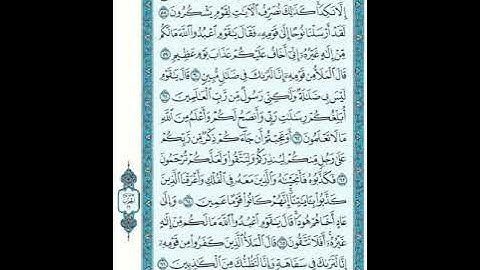 إِلَّا نَكِدًا كَذَٰلِكَ نُصَرِّفُ الْآيَاتِ لِقَوْمٍ يَشْكُرُونَ ٥٨
لَقَدْ أَرْسَلْنَا نُوحًا إِلَىٰ قَوْمِهِ فَقَالَ يَاقَوْمِ اعْبُدُوا اللَّهَ مَا لَكُم
مِّنْ إِلَٰهٍ غَيْرُهُ إِنِّي أَخَافُ عَلَيْكُمْ عَذَابَ يَوْمٍ عَظِيمٍ ٥٩
قَالَ الْمَلَأُ مِن قَوْمِهِ إِنَّا لَنَرَاكَ فِي ضَلَالٍ مُّبِينٍ ٦٠ قَالَ يَاقَوْمِ
لَيْسَ بِي ضَلَالَةٌ وَلَٰكِنِّي رَسُولٌ مِّن رَّبِّ الْعَالَمِينَ ٦١
أُبَلِّغُكُمْ رِسَالَاتِ رَبِّي وَأَنصَحُ لَكُمْ وَأَعْلَمُ مِنَ اللَّهِ
مَا لَا تَعْلَمُونَ ٦٢ أَوَعَجِبْتُمْ أَن جَاءَكُمْ ذِكْرٌ مِّن رَّبِّكُمْ
عَلَىٰ رَجُلٍ مِّنكُمْ لِيُنذِرَكُمْ وَلِتَتَّقُوا وَلَعَلَّكُمْ تُرْحَمُونَ
٦٣ فَكَذَّبُوهُ فَأَنجَيْنَاهُ وَالَّذِينَ مَعَهُ فِي الْفُلْكِ وَأَغْرَقْنَا الَّذِينَ
كَذَّبُوا بِآيَاتِنَا إِنَّهُمْ كَانُوا قَوْمًا عَمِينَ ٦٤ وَإِلَىٰ
عَادٍ أَخَاهُمْ هُودًا قَالَ يَاقَوْمِ اعْبُدُوا اللَّهَ مَا لَكُم مِّنْ إِلَٰهٍ
غَيْرُهُ أَفَلَا تَتَّقُونَ ٦٥ قَالَ الْمَلَأُ الَّذِينَ كَفَرُوا مِن قَوْمِهِ
إِنَّا لَنَرَاكَ فِي سَفَاهَةٍ وَإِنَّا لَنَظُنُّكَ مِنَ الْكَاذِبِينَ ٦٦